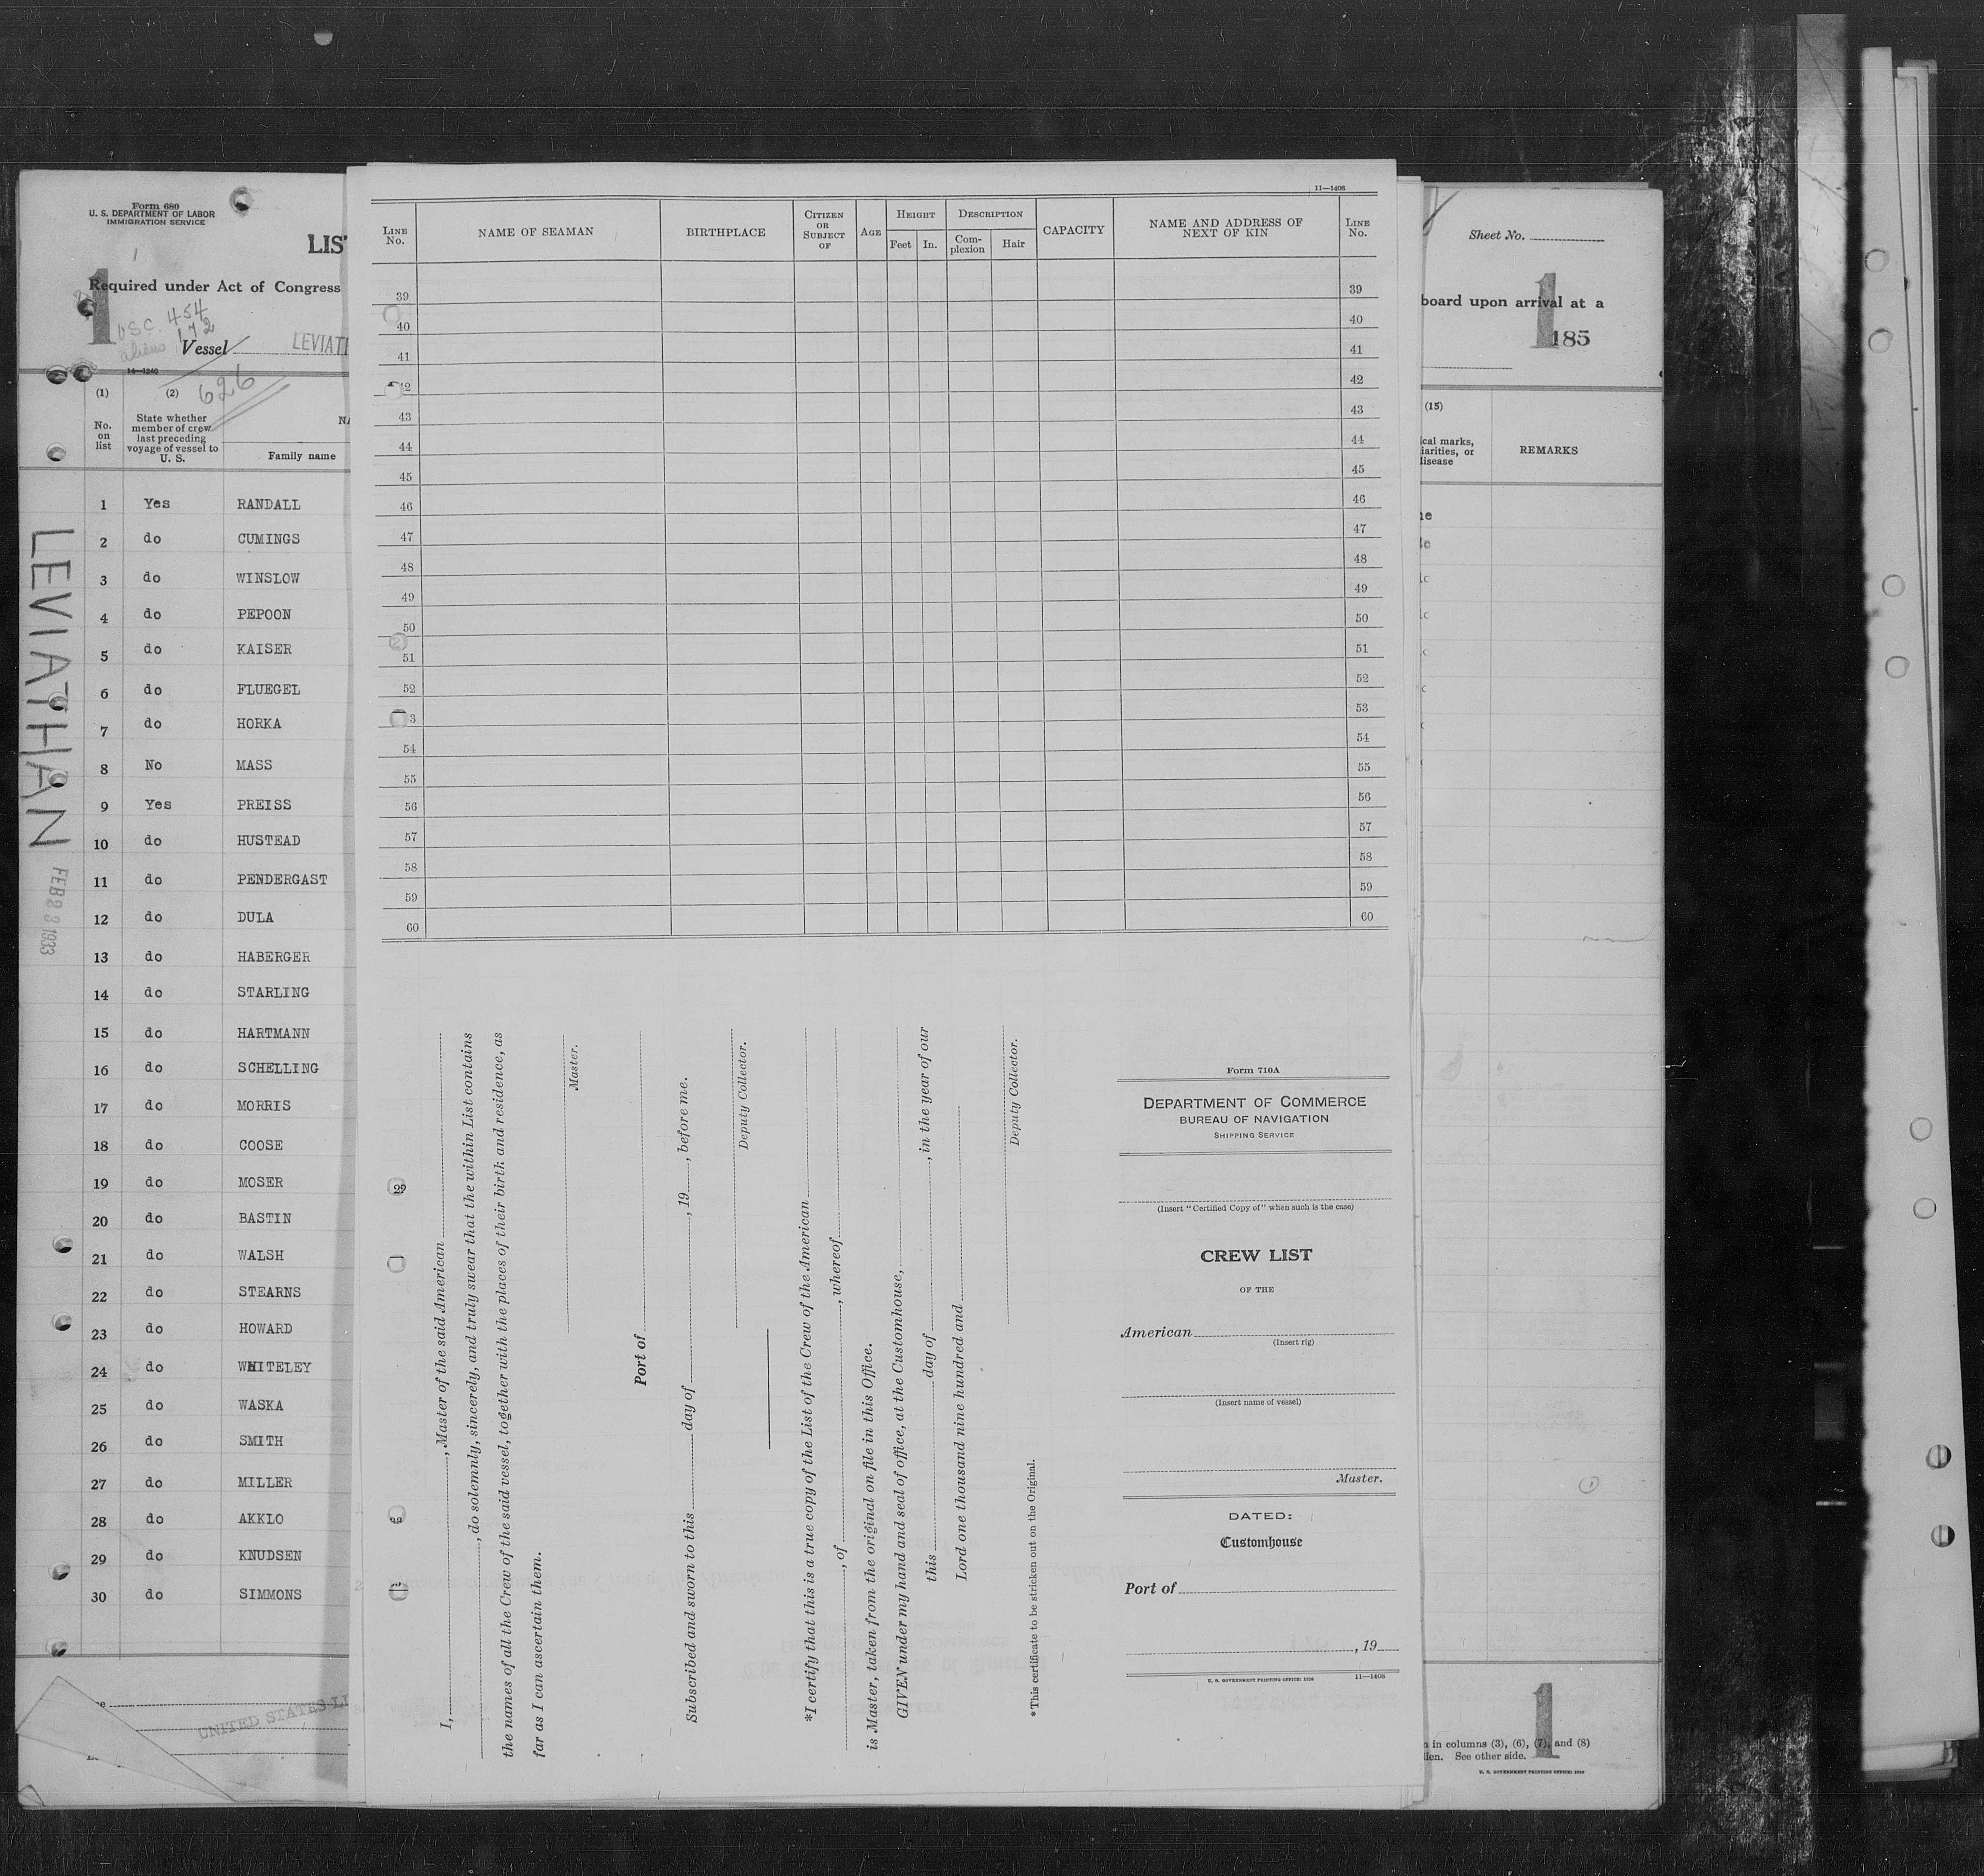 Form 680
U. S. DEPARTMENT OF LABOR
IMMIGRATION SERVICE
1
LIS
1
Required under Act of Congress
USC. 454
aliens 172
Vessel LEVIAT
14—1240
626
(1) (2)
No. on list
State whether member of crew last preceding voyage of vessel to U. S.
NA
Family name
1 Yes RANDALL
2 do CUMINGS
3 do WINSLOW
4 do PEPOON
5 do KAISER
6 do FLUEGEL
7 do HORKA
8 No MASS
9 Yes PREISS
10 do HUSTEAD
11 do PENDERGAST
12 do DULA
13 do HABERGER
14 do STARLING
15 do HARTMANN
16 do SCHELLING
17 do MORRIS
18 do COOSE
19 do MOSER
20 do BASTIN
21 do WALSH
22 do STEARNS
23 do HOWARD
24 do WHITELEY
25 do WASKA
26 do SMITH
27 do MILLER
28 do AKKLO
29 do KNUDSEN
30 do SIMMONS
LEVIATHAN
FEB 23 1933
UNITED STATES LI
11—1408
LINE No.
NAME OF SEAMAN
BIRTHPLACE
CITIZEN OR SUBJECT OF
AGE
HEIGHT
Feet In.
DESCRIPTION
Complexion Hair
CAPACITY
NAME AND ADDRESS OF NEXT OF KIN
LINE No.
39 39
40 40
41 41
42 42
43 43
44 44
45 45
46 46
47 47
48 48
49 49
50 50
51 51
52 52
3 53
54 54
55 55
56 56
57 57
58 58
59 59
60 60
I, , Master of the said American
, do solemnly, sincerely, and truly swear that the within List contains
the names of all the Crew of the said vessel, together with the places of their birth and residence, as
far as I can ascertain them.
Master.
Port of
Subscribed and sworn to this day of , 19 , before me.
Deputy Collector.
*I certify that this is a true copy of the List of the Crew of the American
, of , whereof
is Master, taken from the original on file in this Office.
GIVEN under my hand and seal of office, at the Customhouse,
this day of , in the year of our
Lord one thousand nine hundred and
Deputy Collector.
*This certificate to be stricken out on the Original.
Form 710A
DEPARTMENT OF COMMERCE
BUREAU OF NAVIGATION
SHIPPING SERVICE
(Insert "Certified Copy of" when such is the case)
CREW LIST
OF THE
American
(Insert rig)
(Insert name of vessel)
Master.
DATED:
Customhouse
Port of
, 19
U. S. GOVERNMENT PRINTING OFFICE: 11—1408
Sheet No.
1
board upon arrival at a
185
(15)
cal marks,
iarities, or
disease
REMARKS
1
n in columns (3), (6), (7), and (8)
lien. See other side.
U. S. GOVERNMENT PRINTING OFFICE: